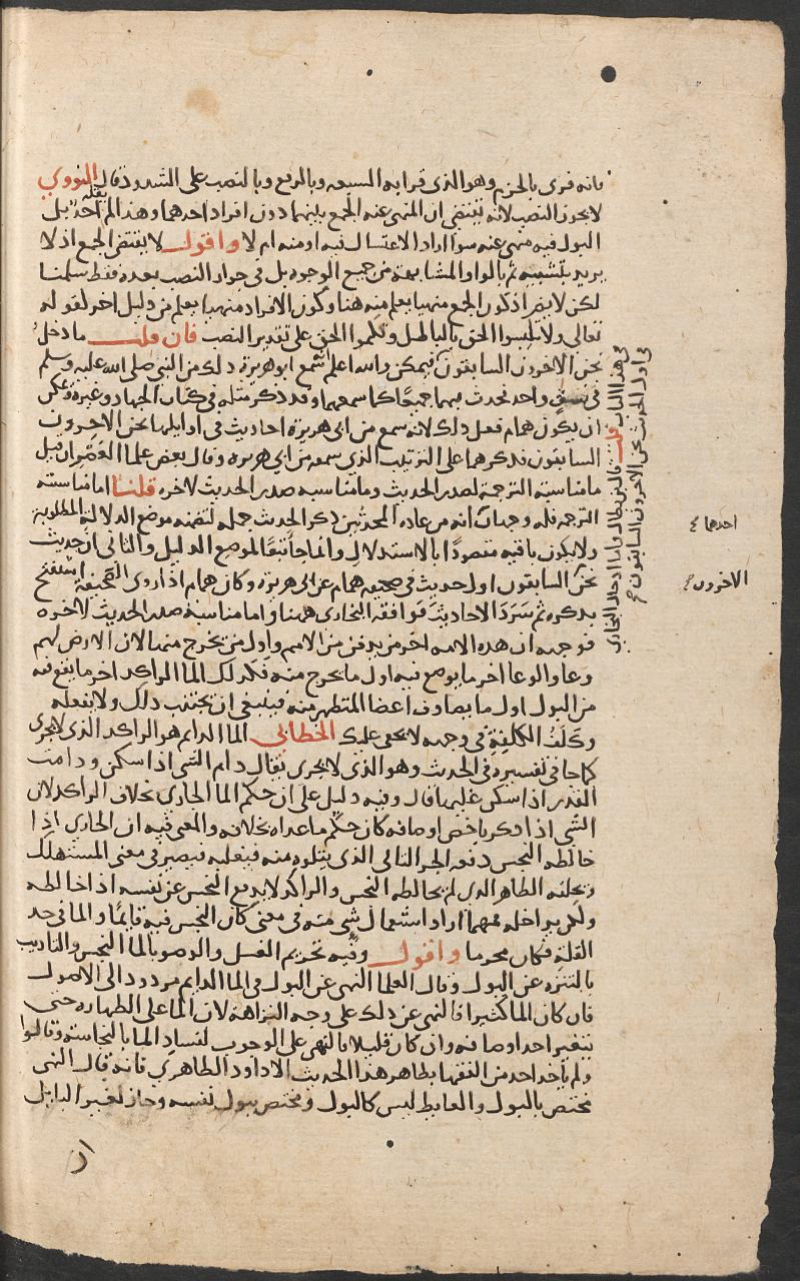 فانه قرى بالجزم وهو الذى قرا به السبعه وبالرفع وبالنصب على الشذوذ قال النووي
لا يجوز النصب لانه يقتضى ان المنهى عنه الجمع بينهما دون افراد احدهما وهذا لم يقله احد بل
البول فيه منهى عنه سوا اراد الاغتسال فيه او منه ام لا واقول لا يقتضى الجمع اذ لا
يريد بتشبيه ثم بالواو المشابهة من جميع الوجوه بل فى جواز النصب بعده فقط سلمنا
لكن لا يضر اذ كون الجمع منهيا يعلم من هنا وكون الافراد منهيا يعلم من دليل اخر لقوله
تعالى ولا تلبسوا الحق بالباطل وتكتموا الحق على تقدير النصب فان قلت ما دخل
نحن الاخرون السابقون فيمكن والله اعلم سمع ابو هريرة ذلك من النبي صلى الله عليه وسلم
فى نسق واحد فحدث بهما جميعا كما سمعهما وقد ذكر مثله فى كتاب الجهاد وغيره ويمكن
ان يكون همام فعل ذلك لانه سمع من ابى هريرة احاديث فى اوايلها نحن الاخرون
السابقون فذكرهما على الترتيب الذى سمعه من ابى هريره وقال بعض علما العصر ان قيل
ما مناسبة الترجمة لصدر الحديث وما مناسبه صدر الحديث لاخره قلنا اما مناسبته
الترجمة فله وجهان انه من عادة المحدثين ذكر الحديث جمله لتضمنه موضع الدلالة المطلوبة
ولا يكون باقيه مقصودا بالاستدلال وانما جا تبعا لموضع الدليل والثانى ان حديث
نحن السابقون اول حديث فى صحيفه همام عن ابى هريرة وكان همام اذا روى الصحيفة استفتح
بذكره ثم سرد الاحاديث فوافقه البخارى ههنا واما مناسبة صدر الحديث لاخره
فوجهه ان هذه الامه اخر من يدفن من الامم واول من يخرج منها لان الارض لهم
وعا والوعا اخر ما يوضع فيه اول ما يخرج منه فكذلك الما الراكد اخر ما يقع فيه
من البول اول ما يصادف اعضا المتطهر منه فينبغى ان يجتنب ذلك ولا يفعله
وكلف الكلفة فى وجهه لا يخفى عليك الخطابى الما الدايم هو الراكد الذى لا يجرى
كما جا فى تفسيره فى الحديث وهو الذى لا يجرى يقال دام الشى اذا سكن ودامت
القدر اذا سكن غليها قال وفيه دليل على ان حكم الما الجارى بخلاف الراكد لان
الشى اذا ذكر باخص اوصافه كان حكم ما عداه بخلافه والمعنى فيه ان الجارى اذا
خالطه النجس دفعه الجز التالى الذى يتلوه منه فيغلبه فيصير فى معنى المستهلك
ويخلفه الطاهر الذى لم يخالطه النجس والراكد لا يدفع النجس عن نفسه اذا خالطه
ولكن يداخله فمهما اراد استعمال شى منه فى معنى كان النجس فيه قايما والما فى حد
القلة فكان محرما واقول وفيه تحريم الغسل والوضو بالما النجس والتاديب
بالتنزه عن البول وقال العلما النهى عن البول فى الما الدايم مردود الى الاصول
فان كان الما كثيرا فالنهى عن ذلك على وجه النزاهة لان الما على الطهاره حتى
يتغير احد اوصافه وان كان قليلا فالنهى على الوجوب لفساد الما بالنجاسة وقالوا
ولم ياخذ احد من الفقها بظاهر هذا الحديث الا داود الظاهري فانه قال النهى
مختص بالبول والغايط ليس كالبول ومختص ببول نفسه وجاز لغير البايل
ان
فى هذا الباب قلت قال ابن بطال واما ادخال البخارى
فى اول الحديث نحن الاخرون السابقون
احدهما
الاخرون